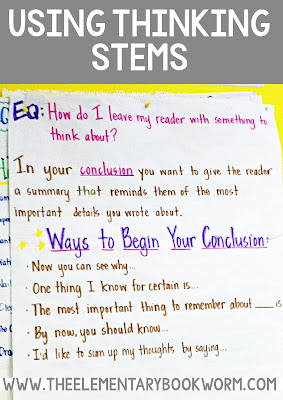 USING THINKING
STEMS
EQ: How do I leave my reader with something to
think about?
In your conclusion you want to give the reader
a summary that reminds them of the most
important details you wrote about.
Ways to Begin Your Conclusion:
• Now you can see why...
• One thing I know for certain is...
• The most important thing to remember about ___ is
• By now, you should know...
• I'd like to sum up my thoughts by saying...
WWW.THEELEMENTARYBOOKWORM.COM